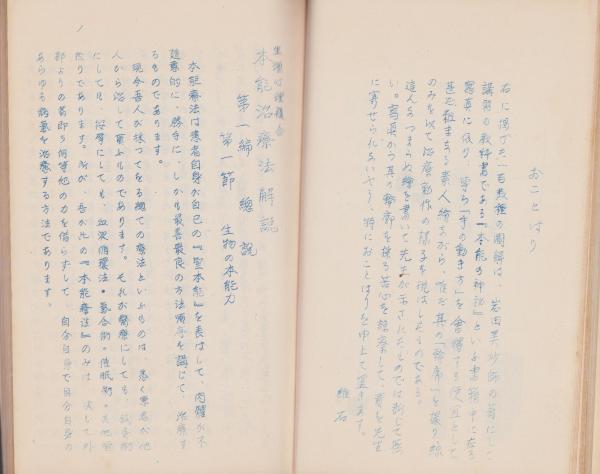 おことはり
右に掲げた一百数種の図解は、岩田美妙師の著にして
講習の教科書である『本能の神秘』といふ書籍中に在る
写真に依り、皆な「手の動き方」を会得する便宜として
甚だ粗末なる素人絵ながら、唯だ其の「輪郭」を取り線
のみを以て治療動作の様子を現はしたものである。
這んなつまらぬ絵を書いて先生が示されたものでは断じて無
い。写真から其の輪郭を採る苦心を諒察して、責を先生
に寄せられないやう、特におことはりを申上て置きます。
雄石
生理心理複合
本能治療法解説
第一編 総説
第一節 生物の本能力
本能療法は患者自身が自己の『聖本能』を表はして、肉体が不
随意的に、勝手に、しかも最善最良の方法順序を講じて、治療す
るものであります。
現今吾人が採つてをる総ての療法といふものは、悉く患者が他
人から治して貰ふものであります。それが医療にしても、鍼灸術
にしても、按摩にしても、血液循環法・気合術・催眠術・其他皆
然りであります。所が、吾が此の『本能療法』のみは、決して外
部よりの薬即ち何等他の力を借らずして、自分自身で自分自身の
あらゆる病気を治癒する方法であります。
1